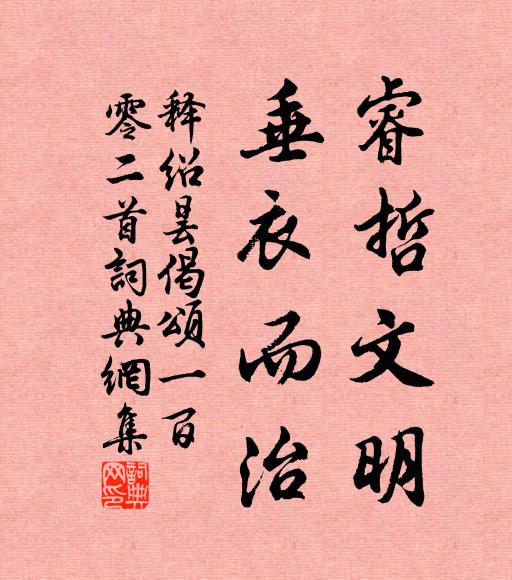 睿哲文明
垂衣而治
释绍昙偈頌一百
零二首詞典網集
詞典
网印